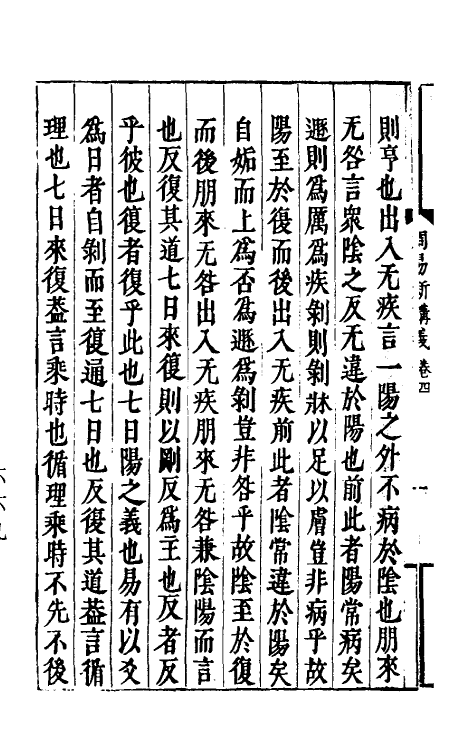 則亨也出入无疾言一陽之外不病於陰也朋來
无咎言衆陰之反无違於陽也前此者陽常病矣
遯則爲厲爲疾剝則剝牀以足以膚豈非病乎故
陽至於復而後出入无疾前此者陰常違於陽矣
自姤而上爲否爲遯爲剝豈非咎乎故陰至於復
而後朋來无咎出入无疾朋來无咎兼陰陽而言
也反復其道七日來復則以剛反爲主也反者反
乎彼也復者復乎此也七日陽之義也易有以爻
爲日者自剝而至復通七日也反復其道葢言循
理也七日來復葢言乘時也循理乘時不先不後
周易新講義 卷四
一